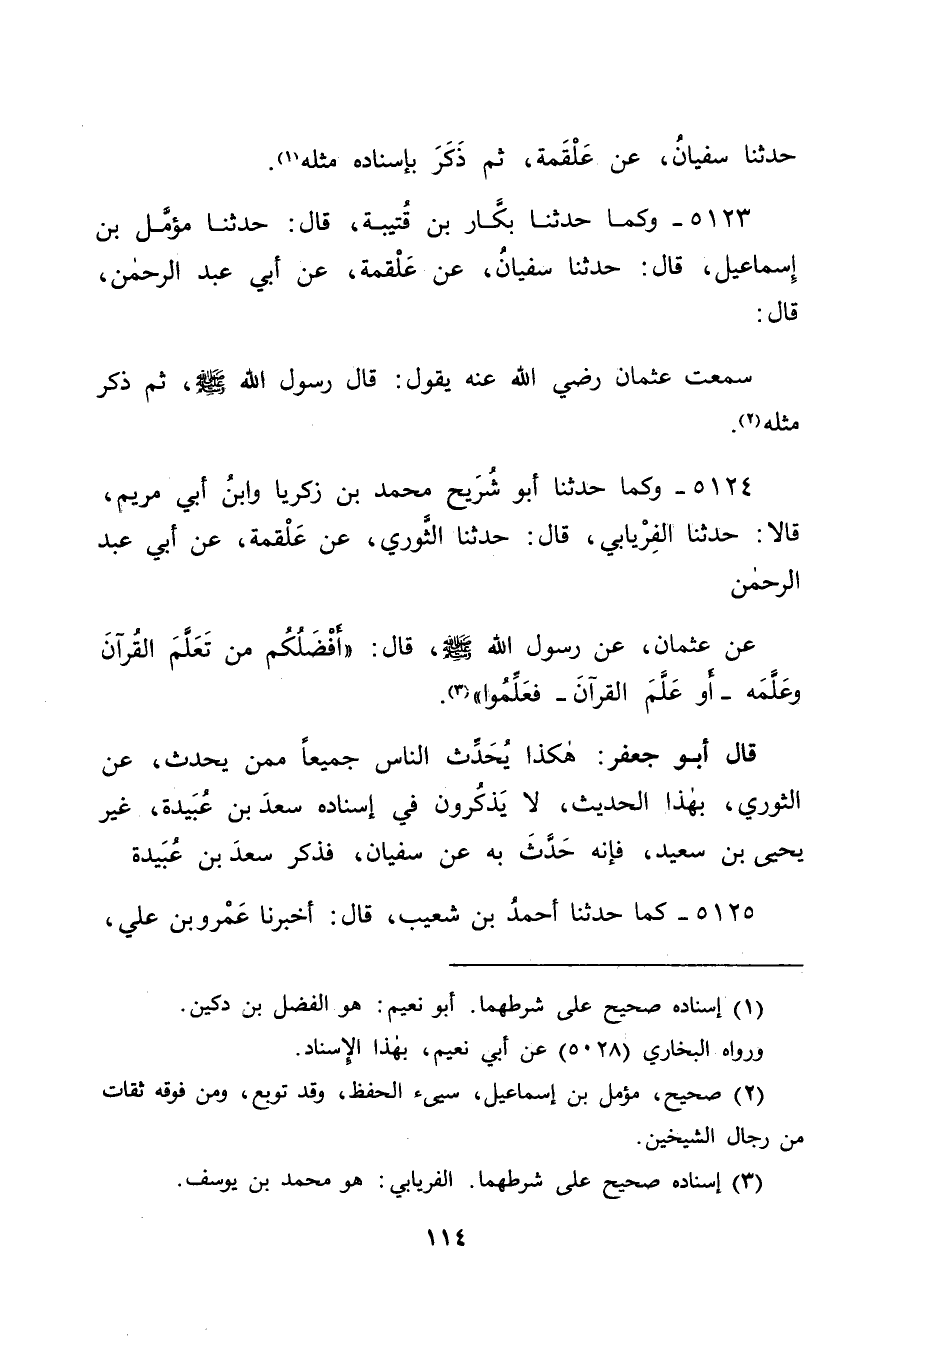 حدثنا سفيانُ، عن عَلْقَمة، ثم ذَكَرَ بإسناده مثله(١).
٥١٢٣ ـ وكما حدثنا بكَّار بن قُتيبة، قال: حدثنا مؤمَّل بن
إسماعيل، قال: حدثنا سفيانُ، عن عَلْقمة، عن أبي عبد الرحمٰن،
قال:
سمعت عثمان رضي الله عنه يقول: قال رسول الله ﷺ، ثم ذكر
مثله(٢).
٥١٢٤ ـ وكما حدثنا أبو شُرَيح محمد بن زكريا وابنُ أبي مريم،
قالا: حدثنا الفِرْيابي، قال: حدثنا الثَّوري، عن عَلْقمة، عن أبي عبد
الرحمٰن
عن عثمان، عن رسول الله ﷺ، قال: «أَفْضَلُكُم من تَعَلَّمَ القُرآنَ
وعَلَّمَه ـ أَو عَلَّمَ القرآنَ ـ فعَلِّمُوا»(٣).
قال أبو جعفر: هٰكذا يُحَدِّث الناس جميعاً ممن يحدث، عن
الثوري، بهٰذا الحديث، لا يَذكُرون في إسناده سعدَ بن عُبَيدة، غير
يحيى بن سعيد، فإنه حَدَّثَ به عن سفيان، فذكر سعدَ بن عُبَيدة
٥١٢٥ ـ كما حدثنا أحمدُ بن شعيب، قال: أخبرنا عَمْرو بن علي،
(١) إسناده صحيح على شرطهما. أبو نعيم: هو الفضل بن دكين.
ورواه البخاري (٥٠٢٨) عن أبي نعيم، بهٰذا الإسناد.
(٢) صحيح، مؤمل بن إسماعيل، سيىء الحفظ، وقد توبع، ومن فوقه ثقات
من رجال الشيخين.
(٣) إسناده صحيح على شرطهما. الفريابي: هو محمد بن يوسف.
١١٤